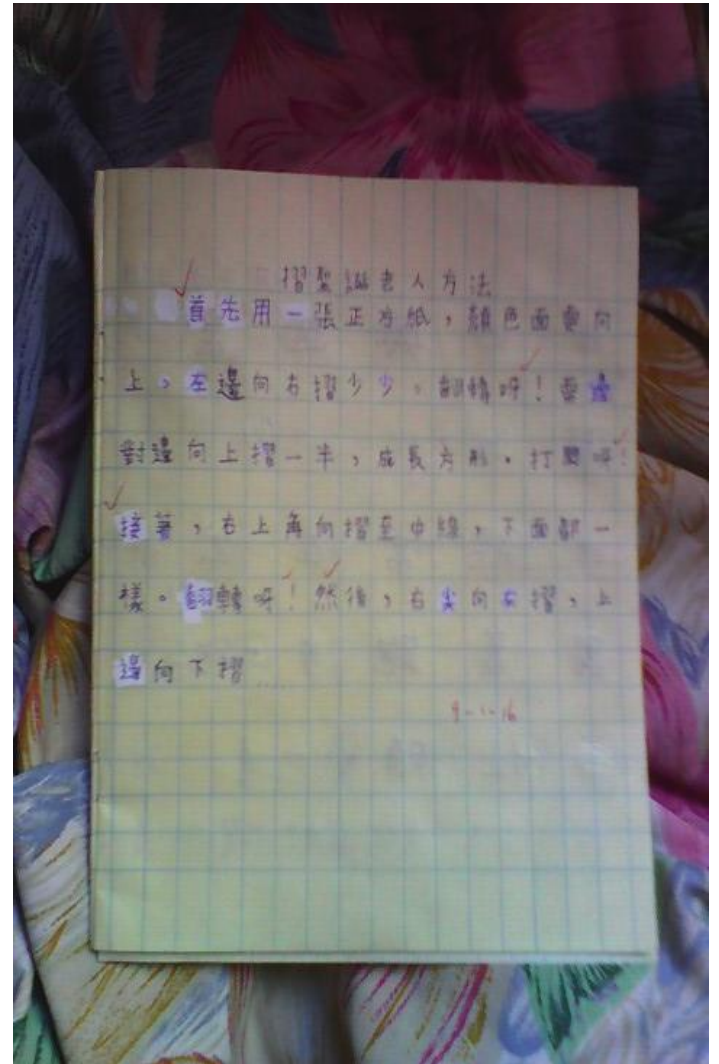 摺聖誕老人方法
首先用一張正方紙，顏色面要向
上。左邊向右摺少少。翻轉呀！要邊
對邊向上摺一半，成長方形。打開呀！
接著，右上角向摺至中線，下面都一
樣。翻轉呀！然後，右尖向左摺，上
邊向下摺......
9-1-16